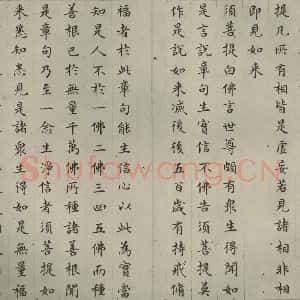 提凡所有相皆是虛妄若見諸相非相
即見如來
須菩提白佛言世尊頗有衆生得聞如
是言說章句生實信不佛告須菩提莫
作是說如來滅後後五百歲有持戒脩
福者於此章句能生信心以此為實當
知是人不於一佛二佛三四五佛而種
善根已於無量千萬佛所種諸善根聞
是章句乃至一念生淨信者須菩提如
来悉知悉見是諸衆生得如是無量福
Shufawang.CN